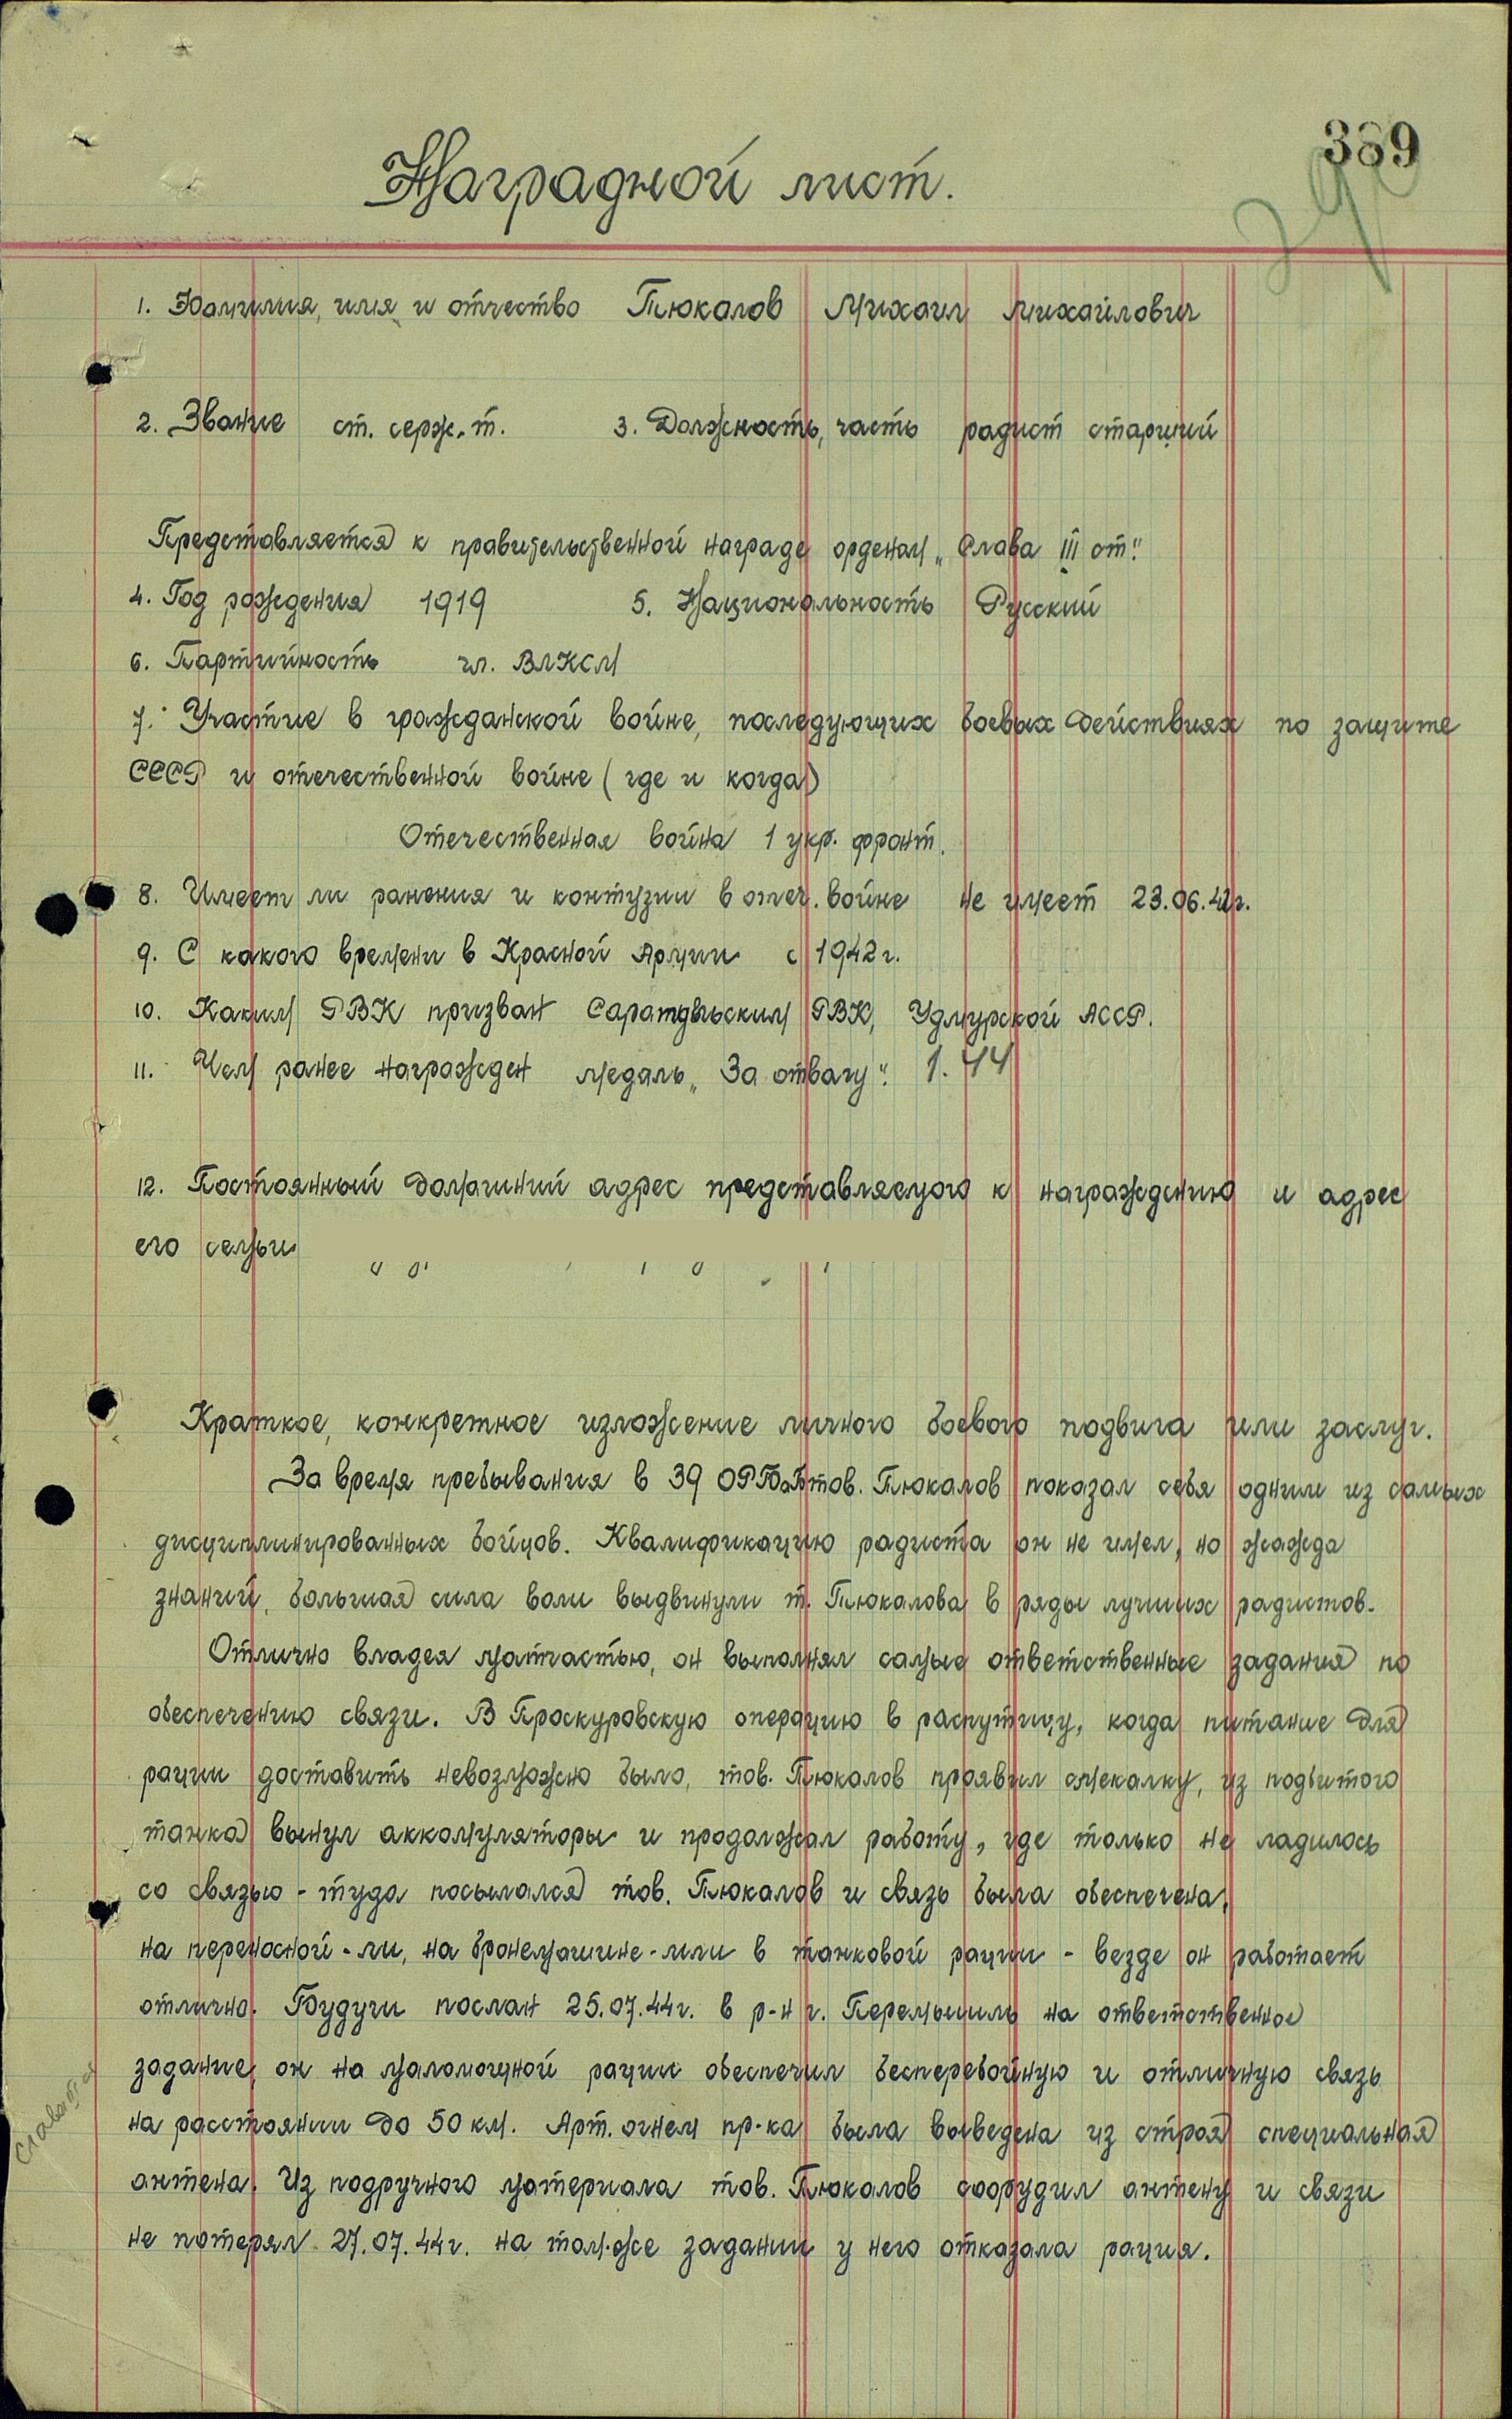 389
Наградной лист.
1. Фамилия, имя и отчество Тюкалов Михаил Михайлович
2. Звание ст. серж-т. 3. Должность, часть радист старший
Представляется к правительственной награде орденом „Слава III ст."
4. Год рождения 1919 5. Национальность Русский
6. Партийность чл. ВЛКСМ
7. Участие в гражданской войне, последующих боевых действиях по защите
СССР и отечественной войне (где и когда)
Отечественная война 1 укр. фронт.
8. Имеет ли ранения и контузии в отеч. войне не имеет 23.06.42г.
9. С какого времени в Красной Армии с 1942 г.
10. Каким РВК призван РВК, Удмурской АССР.
11. Чем ранее награжден медаль „За отвагу". 1.44
12. Постоянный домашний адрес представляемого к награждению и адрес
его семьи
Краткое, конкретное изложение личного боевого подвига или заслуг.
За время пребывания в 39 тов. Тюкалов показал себя одним из самых
дисциплинированных бойцов. Квалификацию радиста он не имел, но жажда
знаний, большая сила воли выдвинули т. Тюкалова в ряды лучших радистов.
Отлично владея матчастью, он выполнял самые ответственные задания по
обеспечению связи. В Проскуровскую операцию в распутицу, когда питание для
рации доставить невозможно было, тов. Тюкалов проявил смекалку, из подбитого
танка вынул аккомуляторы и продолжал работу, где только не ладилось
со связью - туда посылался тов. Тюкалов и связь была обеспечена,
на переносной - ли, на бронемашине - или в танковой рации - везде он работает
отлично. Будучи послан 25.07.44г. в р-н г. Перемышль на ответственное
задание, он на маломощной рации обеспечил бесперебойную и отличную связь
на расстоянии до 50 км. Арт. огнем пр-ка была выведена из строя специальная
антена. Из подручного материала тов. Тюкалов соорудил антену и связи
не потерял. 27.07.44г. на том-же задании у него отказала рация.